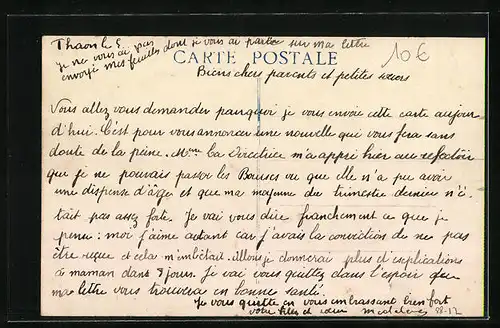 Thaon le 5
je ne vous ai pas
envoyé mes feuilles dont je vous ai parlée sur ma lettre
10€
CARTE POSTALE
Biens chers parents et petites sœurs
Vous allez vous demander pourquoi je vous envoie cette carte aujour-
d'hui. C'est pour vous annoncer une nouvelle qui vous fera sans
doute de la peine. Mme La Directrice m'a appri hier au refectoire
que je ne pouvais passer les Bourses vu que elle n'a pu avoir
une dispense d'âge et que ma moyenne du trimestre dernier n'é-
tait pas assez forte. Je vai vous dire franchement ce que je
pense: moi j'aime autant car j'avais la conviction de ne pas
être reçue et cela m'embêtait. je donnerai plus d'explications
à maman dans 8 jours. Je vai vous quittez dans l'espoir que
ma lettre vous trouvera en bonne santé.
Je vous quitte en vous embrassant bien fort
votre filles et sœur